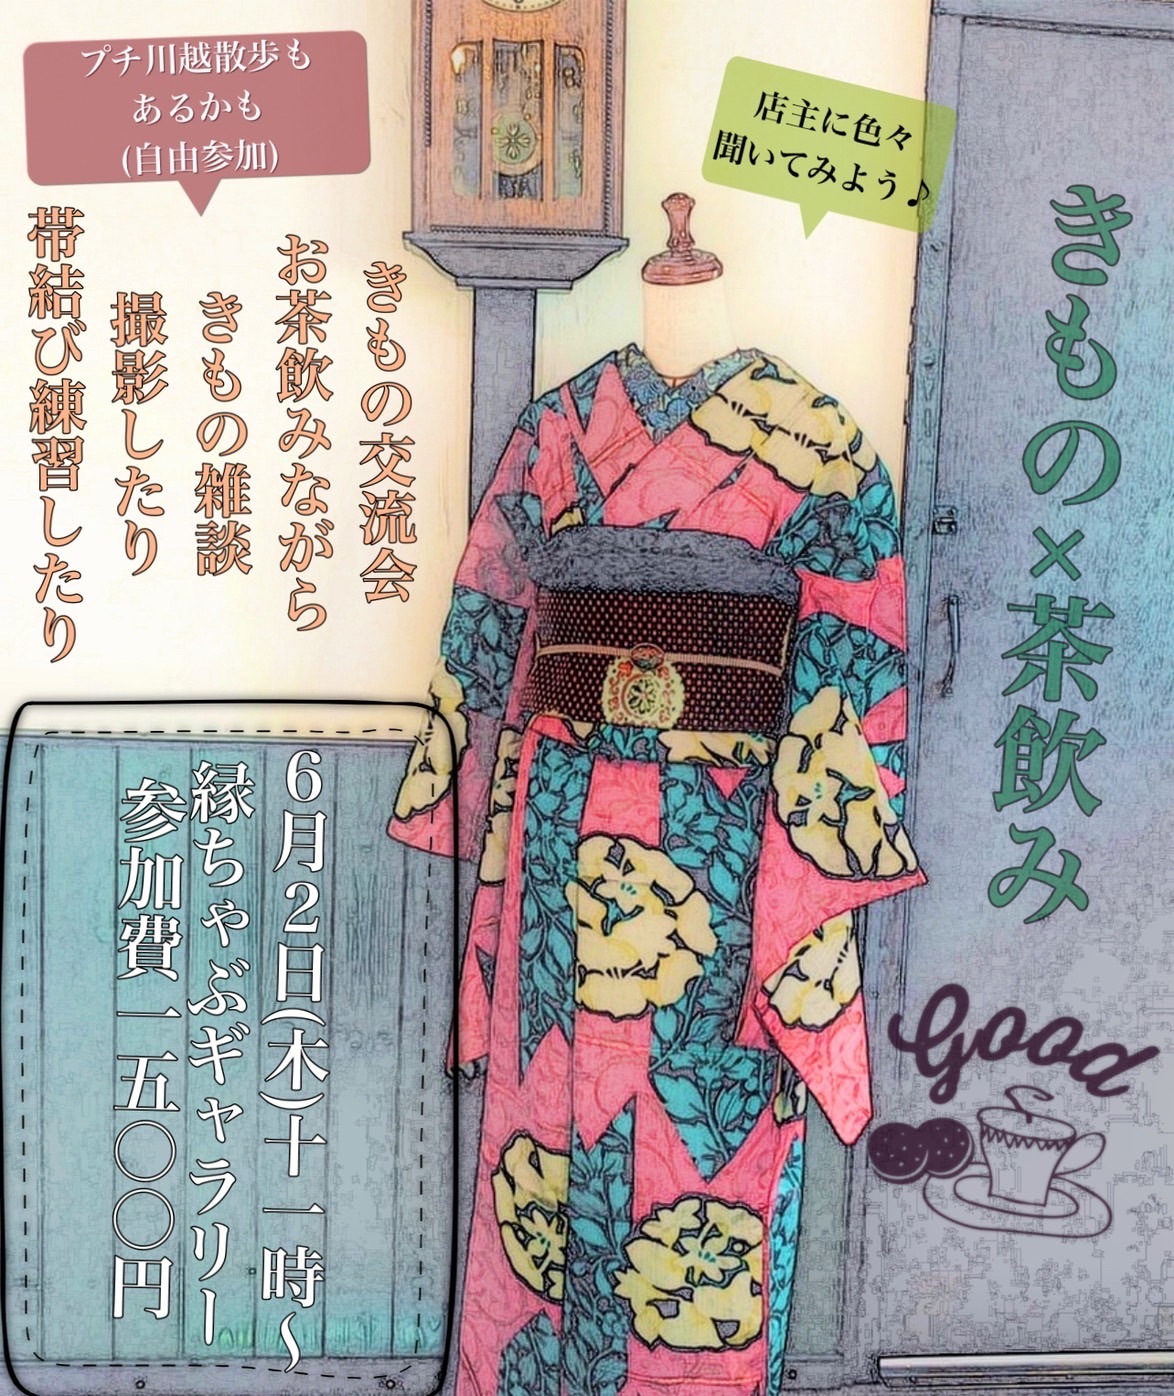 きもの×茶飲み
店主に色々
聞いてみよう♪
プチ川越散歩も
あるかも
(自由参加)
きもの交流会
お茶飲みながら
きもの雑談
撮影したり
帯結び練習したり
6月2日(木)十一時～
縁ちゃぶギャラリー
参加費一五〇〇円
Good